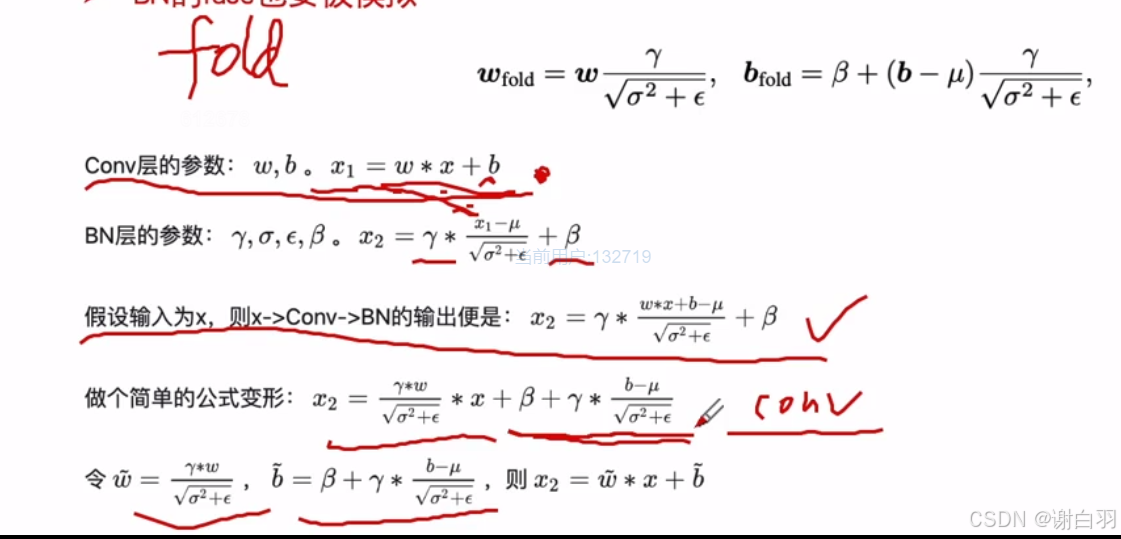 BN的fuse也要被模拟
fold
w_fold = w γ/√(σ² + ϵ), b_fold = β + (b − μ) γ/√(σ² + ϵ),
Conv层的参数：w, b 。x₁ = w * x + b
BN层的参数：γ, σ, ϵ, β 。x₂ = γ * (x₁−μ)/√(σ²+ϵ) + β
当前用户:132719
假设输入为x，则x->Conv->BN的输出便是：x₂ = γ * (w*x+b−μ)/√(σ²+ϵ) + β
做个简单的公式变形：x₂ = (γ*w)/√(σ²+ϵ) * x + β + γ * (b−μ)/√(σ²+ϵ)
conv
令 w̃ = (γ*w)/√(σ²+ϵ) ，b̃ = β + γ * (b−μ)/√(σ²+ϵ) ，则 x₂ = w̃ * x + b̃
CSDN @谢白羽